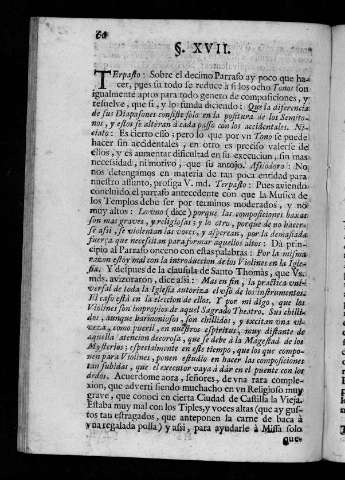 60
§. XVII.
TErpasto: Sobre el decimo Parrafo ay poco que ha-
cer, pues su todo se reduce à si los ocho Tonos son
igualmente aptos para todo genero de composiciones, y
resuelve, que si, y lo funda diciendo: Que la diferencia
de sus Diapasones consiste solo en la postura de los Semito-
nos, y estos se alteran à cada passo con los accidentales. Ni-
cіato: Es cierto esso; pero lo que por vn Tono se puede
hacer sin accidentales, en otro es preciso valerse de
ellos, y es aumentar dificultad en su execucion, sin mas
necessidad, ni motivo, que su antojo. Asiodoro: No
nos detengamos en materia de tan poca entidad para
nuestro assunto, prosiga V. md. Terpasto: Pues aviendo
concluìdo el parrafo antecedente con que la Musica de
los Templos debe ser por terminos moderados, y no
muy altos: Lo vno (dice) porque las composiciones baxas
son mas graves, y religiosas; y lo otro, porque de no hacer-
se assi, se violentan las voces, y asperean, por la demasiada
fuerza que necesitan para formar aquellos altos: Dà prin-
cipio al Parrafo onceno con estas palabras: Por la misma
razon estoy mal con la introduccion de los Violines en la Igle-
sia. Y despues de la clausula de Santo Thomàs, que Vs.
mds. avizoraron, dice assi: Mas en fin, la practica vni-
versal de toda la Iglesia autoriza el vso de los instrumentos.
El caso està en la eleccion de ellos. Y por mi digo, que los
Violines son impropios de aquel Sagrado Theatro. Sus chilli-
dos, aunque harmoniosos, son chillidos, y excitan una vi-
veza, como pueril, en nuestros espiritus, muy distante de
aquella atencion decorosa, que se debe à la Magestad de los
Mysterios: especialmente en este tiempo, que los que compo-
nen para Violines, ponen estudio en hacer las composiciones
tan subidas, que el executor vaya à dàr en el puente con los
dedos. Acuerdome aora, señores, de vna rara comple-
xion, que advertì siendo muchacho en vn Religioso muy
grave, que conocì en cierta Ciudad de Castilla la Vieja.
Estaba muy mal con los Tiples, y voces altas (que ay gus-
tos tan estragados, que anteponen la carne de baca à
vna regalada polla) y assi, para ayudarle à Missa solo
que-